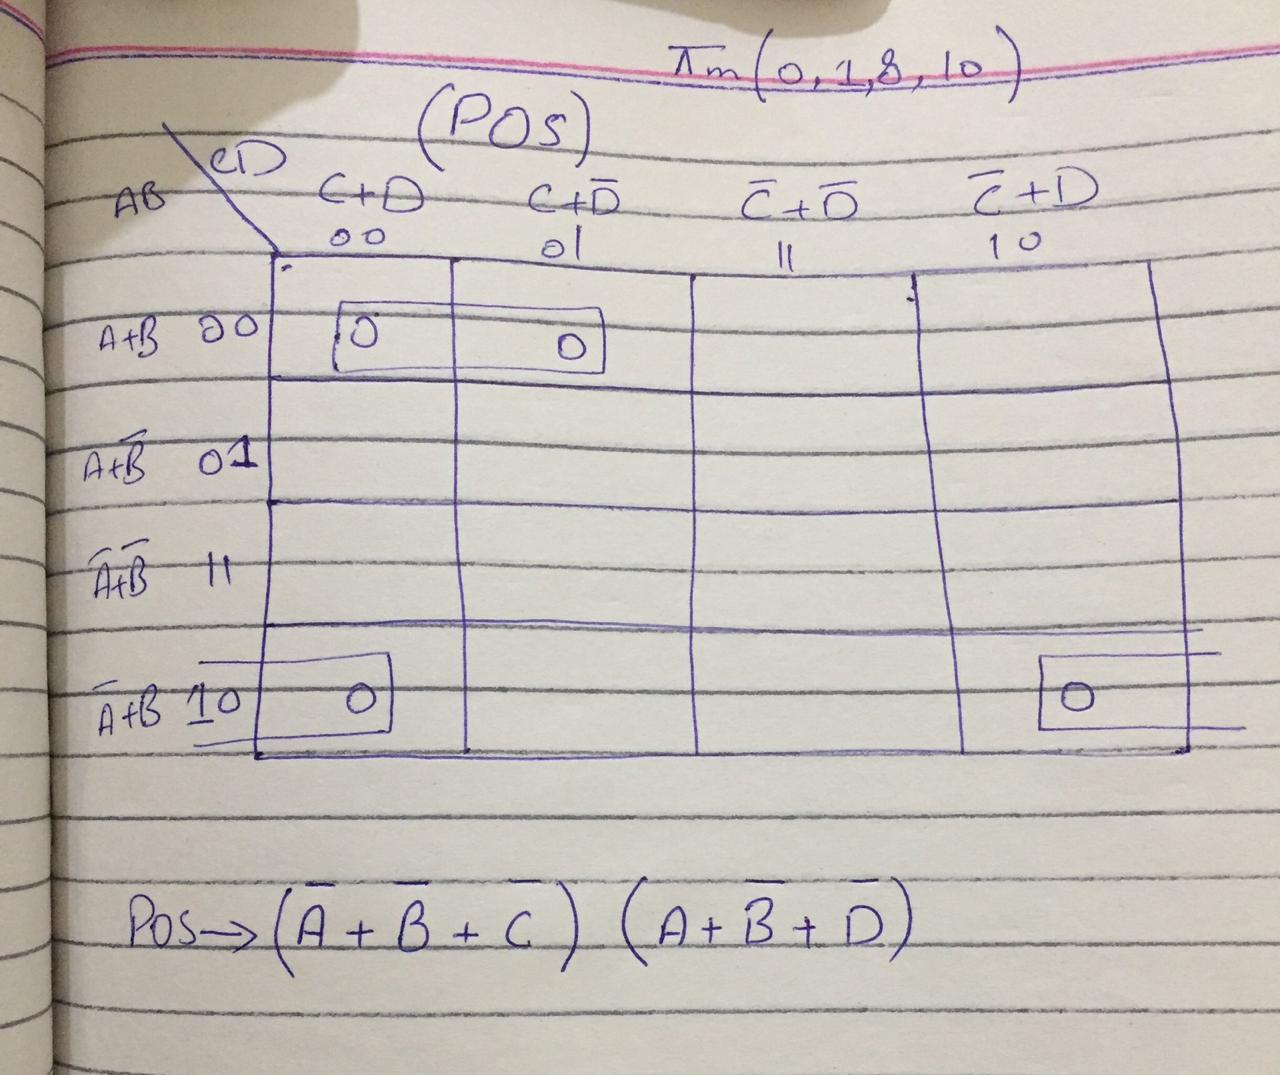 πm(0,1,8,10)
(POS)
CD
AB
C+D C+D̅ C̅+D̅ C̅+D
00 01 11 10
A+B 00 0 0
A+B̅ 01
A̅+B̅ 11
A̅+B 10 0 0
POS→(A̅+B̅+C̅) (A+B̅+D̅)